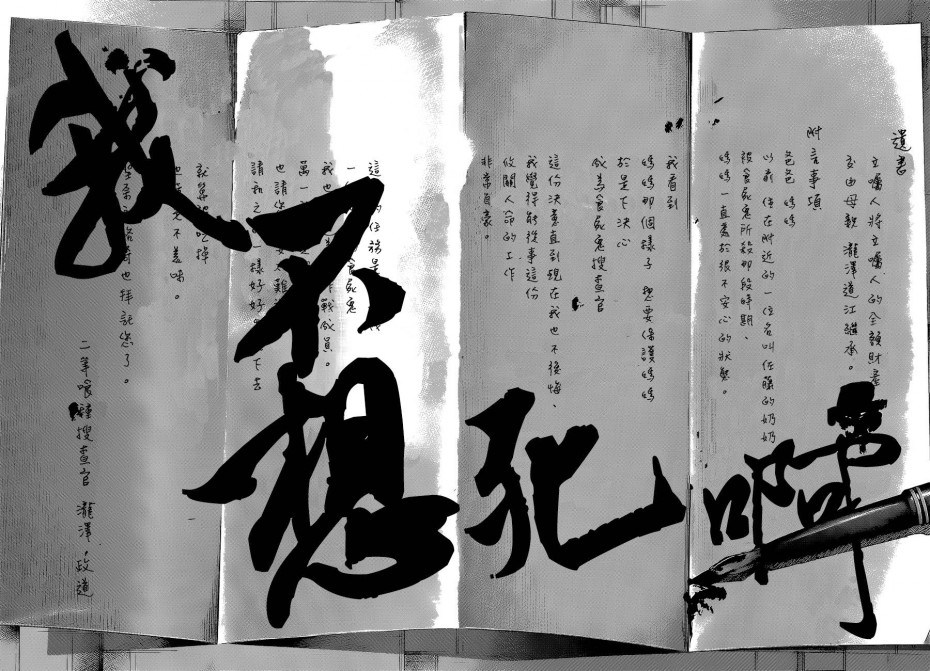 遺書
立囑人將立囑人的全額財產
交由母親 瀧澤道江繼承。
附言事項
爸爸 媽媽
以前 住在附近的一位名叫佐藤的奶奶
被食屍鬼所殺那段時期、
媽媽一直處於很不安心的狀態。
我看到
媽媽那個樣子 想要保護媽媽
於是下決心
成為食屍鬼搜查官
這份決意直到現在我也不後悔、
我覺得能從事這份
攸關人命的工作
非常自豪。
這 的任務是
一 食屍鬼
我也 作戰成員。
萬一
也請您 難過
請和之 一樣好好 下去
就算被吃掉
也 不美味。
也拜託您了。
二等喰種搜查官 瀧澤 政道
我不想死啊